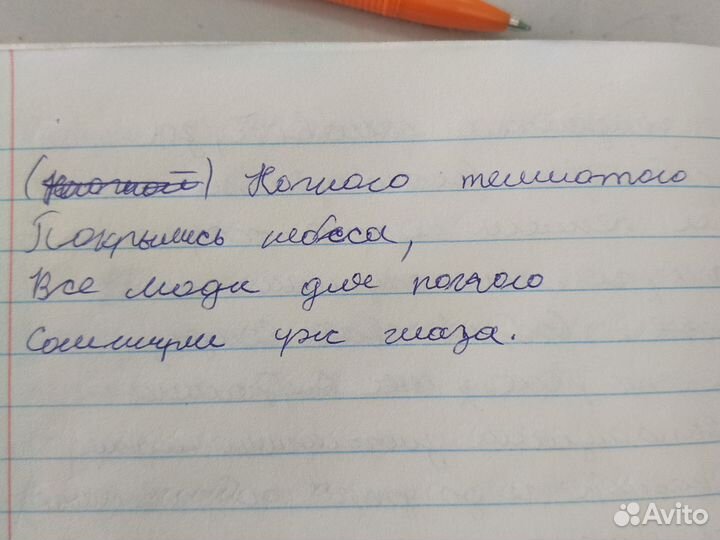 Ночною темнотою
Покрылись небеса,
Все люди для покою
Сомкнули уж глаза.
Avito